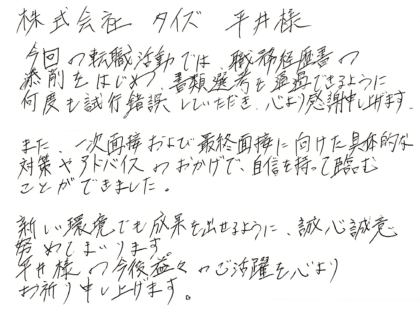 株式会社 タイズ 平井様
今回の転職活動では、職務経歴書の
添削をはじめ、書類選考を通過できるように
何度も試行錯誤していただき、心より感謝申し上げます。
また、一次面接および最終面接に向けた具体的な
対策やアドバイスのおかげで、自信を持って臨む
ことができました。
新しい環境でも成果を出せるように、誠心誠意
努めてまいります。
平井様の今後益々のご活躍を心より
お祈り申し上げます。